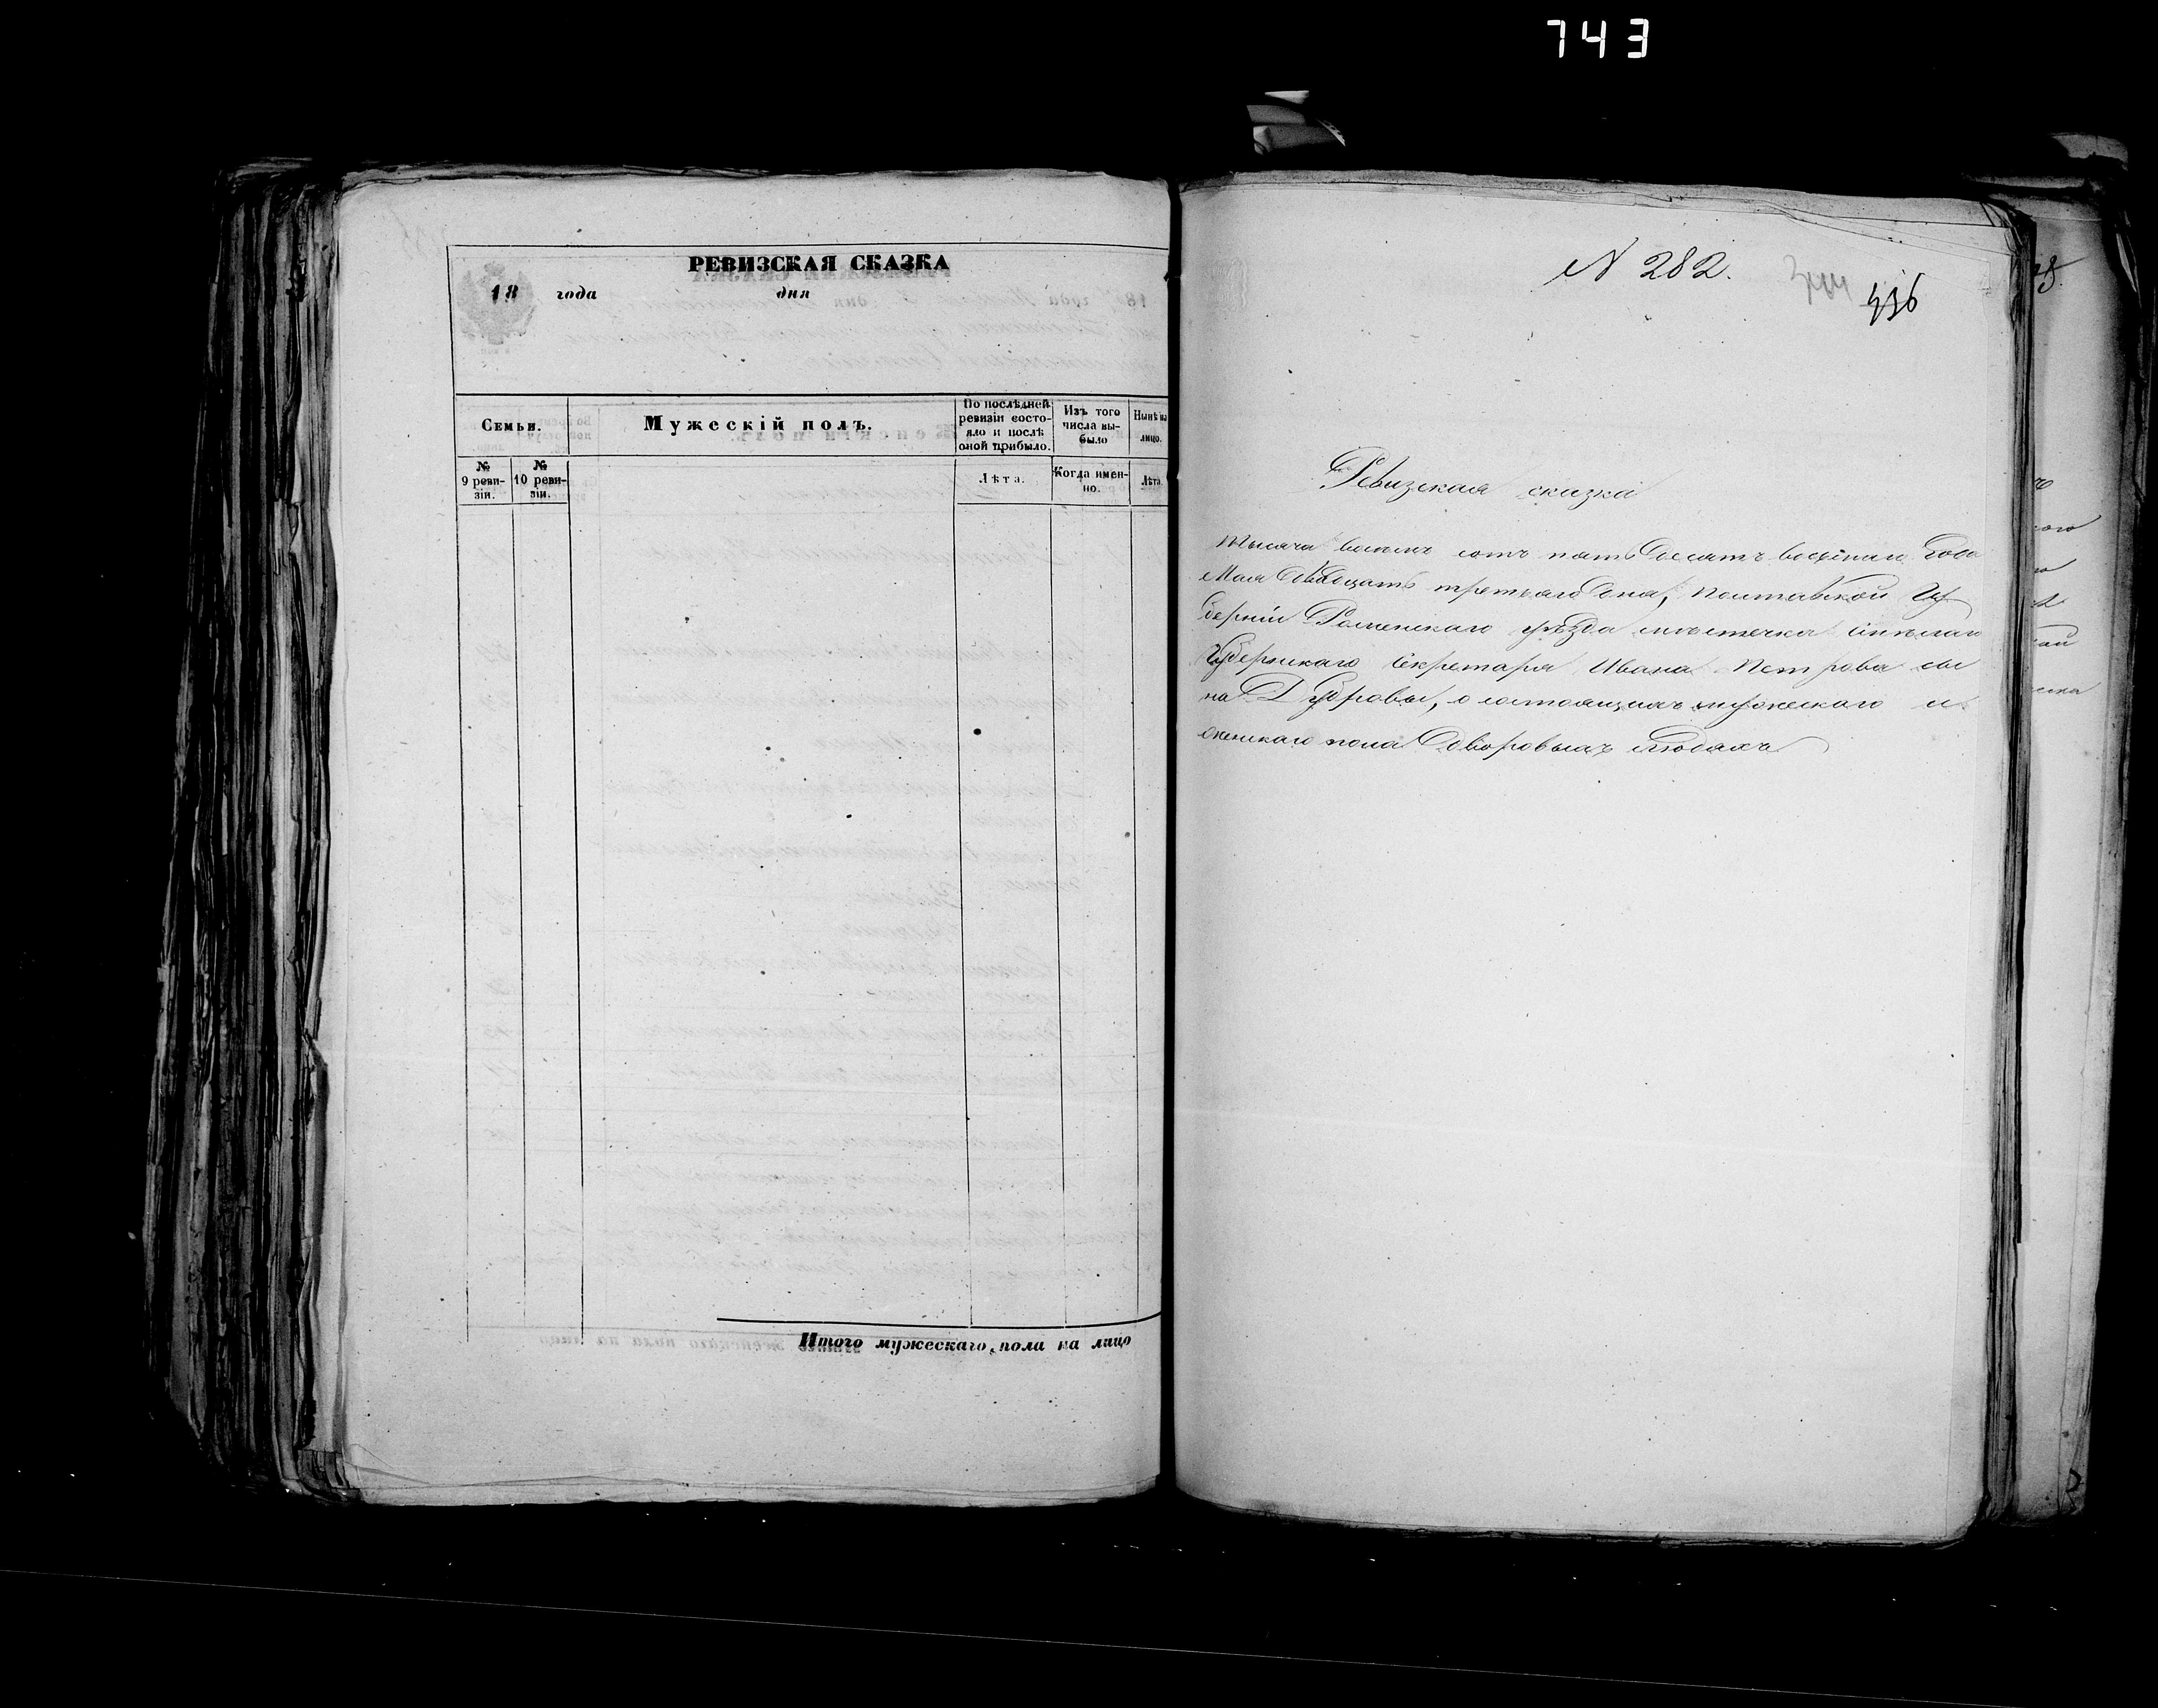 743
РЕВИЗСКАЯ СКАЗКА
18 года дня
Семьи.
Мужескій полъ.
По послѣдней ревизіи состояло и послѣ оной прибыло.
Изъ того числа выбыло
Нынѣ на лицо.
№ 9 ревизіи.
№ 10 ревизіи.
Лѣта.
Когда именно.
Лѣта.
Итого мужескаго пола на лицо
N 282.
344
436
Ревизская сказка
тысяча восемь сотъ пятьдесятъ года
Мая двадцать третьяго дня, Полтавской Гу
берніи Роменскаго уѣзда мѣстечка
Губернскаго Секретаря Ивана Петрова сы
на Дуброва, о состоящихъ мужескаго и
женскаго пола дворовыхъ людяхъ